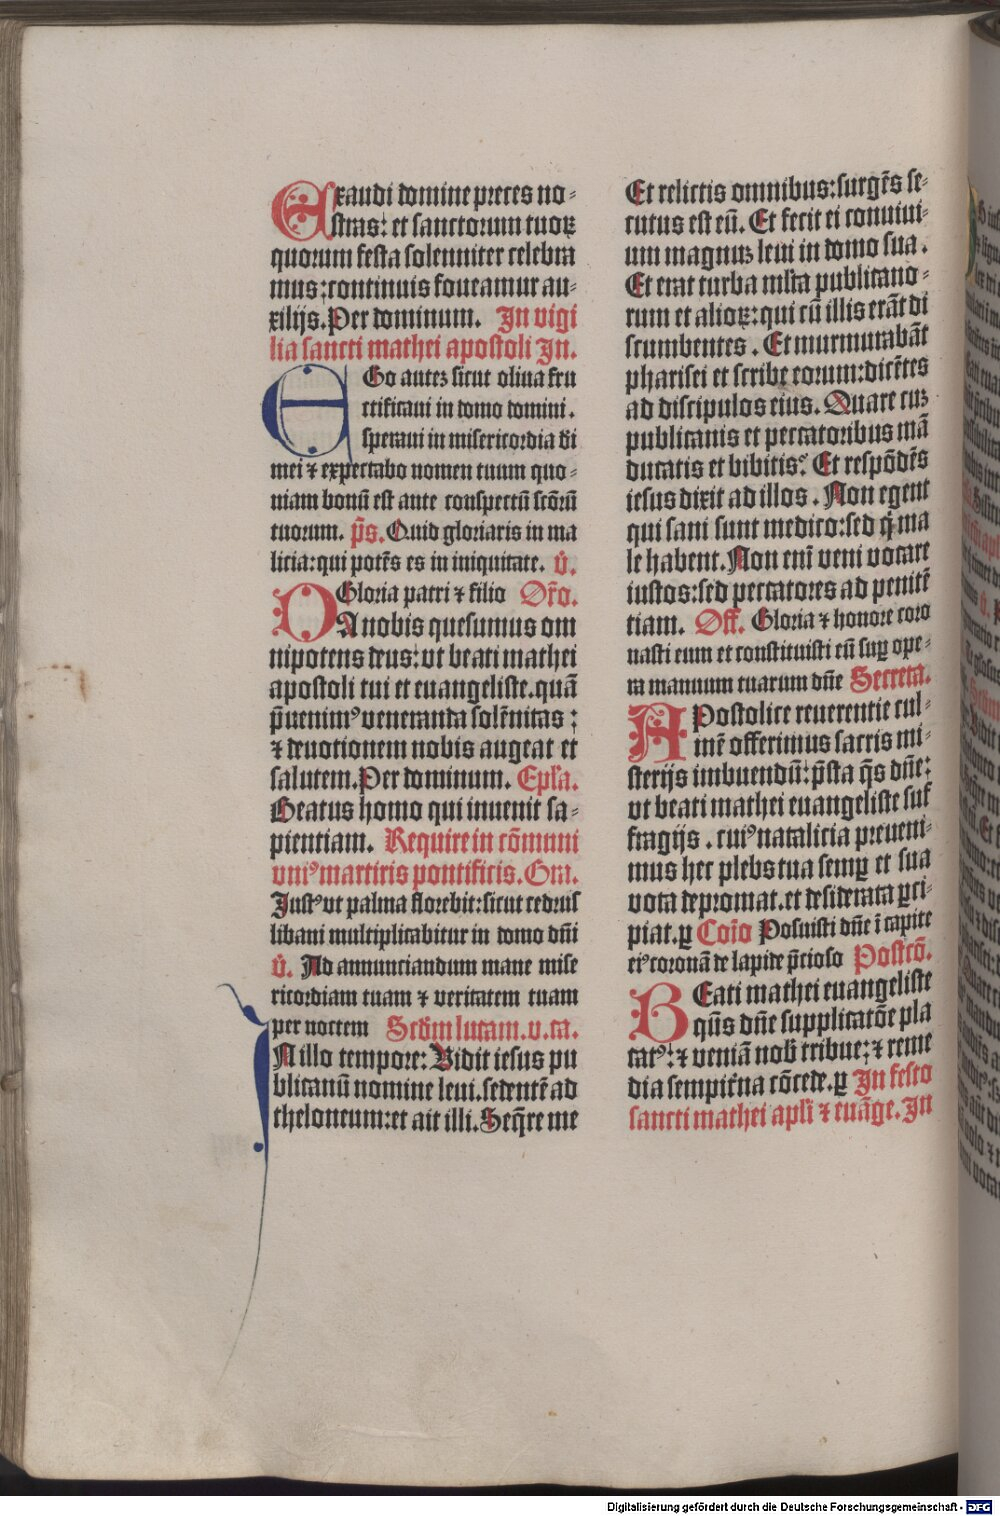 Exaudi domine preces no-
stras: et sanctorum tuoꝝ
quorum festa solenniter celebra
mus: continuis foueamur au-
xilijs. Per dominum. In vigi
lia sancti mathei apostoli In.
EGo auteꝫ sicut oliua fru
ctificaui in domo domini.
speraui in misericordia di
mei ⁊ expectabo nomen tuum quo-
niam bonū est ante conspectū sc̄orū
tuorum. p̄s. Quid gloriaris in ma
licia: qui potēs es in iniquitate. v̄.
Gloria patri ⁊ filio Or̄o.
DA nobis quesumus om
nipotens deus: vt beati mathei
apostoli tui et euangeliste. quā
p̄uenimꝰ veneranda solēnitas:
⁊ deuotionem nobis augeat et
salutem. Per dominum. Epl̄a.
Beatus homo qui inuenit sa-
pientiam. Require in cōmuni
vniꝰ martiris pontificis. Gra.
Justꝰ vt palma florebit: sicut cedrus
libani multiplicabitur in domo dn̄i
v̄. Ad annunciandum mane mise
ricordiam tuam ⁊ veritatem tuam
per noctem Scd̄m lucam. v. ca.
IN illo tempore: Vidit iesus pu
blicanū nomine leui. sedentē ad
theloneum: et ait illi. Seq̄re me
Et relictis omnibus: surgēs se-
cutus est eū. Et fecit ei conuiui-
um magnuꝫ leui in domo sua.
Et erat turba ml̄ta publicano-
rum et alioꝝ: qui cū illis erāt di
scumbentes. Et murmurabāt
pharisei et scribe eorum: dicētes
ad discipulos eius. Quare cuꝫ
publicanis et peccatoribus mā
ducatis et bibitis? Et respōdēs
iesus dixit ad illos. Non egent
qui sani sunt medico: sed q̄ ma
le habent. Non enī veni vocare
iustos: sed peccatores ad penitē
tiam. Off. Gloria ⁊ honore coro
nasti eum et constituisti eū suꝑ ope-
ra manuum tuarum dn̄e Secreta.
APostolice reuerentie cul-
mē offerimus sacris mi-
sterijs imbuendū: p̄sta q̄s dn̄e:
vt beati mathei euangeliste suf
fragijs. cuiꝰ natalicia preueni-
mus hec plebs tua semꝑ et sua
vota depromat. et desiderata ꝑci-
piat. ꝑ Coīo Posuisti dn̄e ī capite
eiꝰ coronā de lapide p̄cioso Postcō.
BEati mathei euangeliste
qūs dn̄e supplicatōe pla
catꝰ: ⁊ veniā nob̄ tribue: ⁊ reme
dia sempit̄na cōcede. ꝑ In festo
sancti mathei apl̄i ⁊ euāge. In
Digitalisierung gefördert durch die Deutsche Forschungsgemeinschaft - DFG